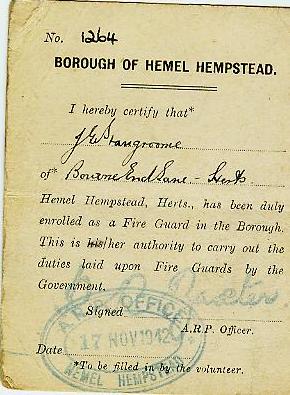 No. 1264
BOROUGH OF HEMEL HEMPSTEAD.
I hereby certify that*
J E Hangroome
of* Bourne End Lane - Herts
Hemel Hempstead, Herts., has been duly
enrolled as a Fire Guard in the Borough.
This is his/her authority to carry out the
duties laid upon Fire Guards by the
Government.
Signed Baxter
A.R.P. Officer.
A.R.P. OFFICE
Date 17 NOV 1942
*To be filled in by the volunteer.
HEMEL HEMPSTEAD